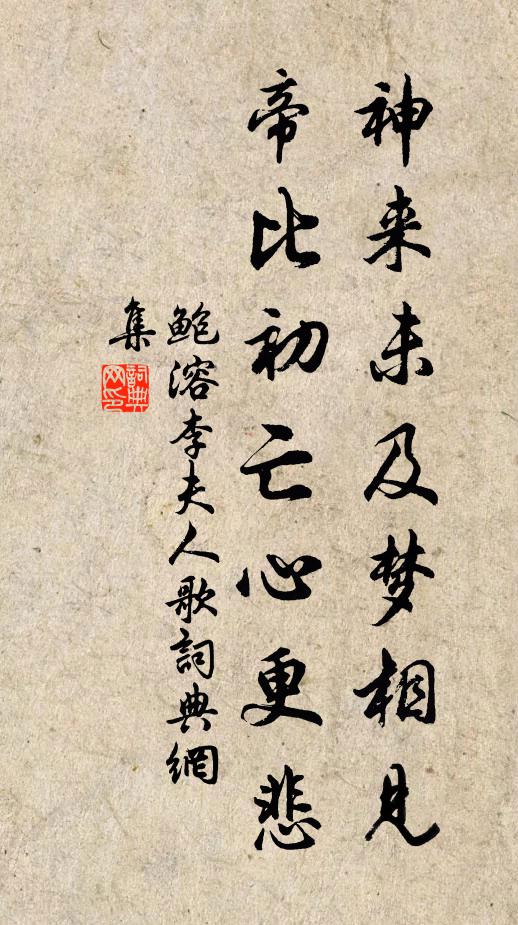 神来未及梦相見
帝比初亡心更悲
鲍溶李夫人歌詞典網
集
詞典
网印